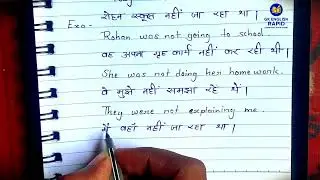 रोहन स्कूल नहीं जा रहा था।
Exa:- Rohan was not going to school.
वह अपना गृह कार्य नहीं कर रही थी।
She was not doing her home work.
वे मुझे नहीं समझा रहे थे।
They were not explaining me.
मैं वहाँ नहीं जा रहा था।
GK ENGLISH
RAPID